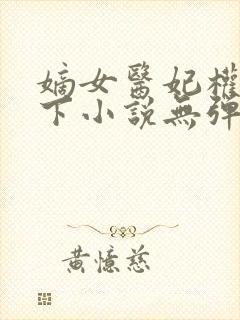 嫡女醫妃權
下小説無彈
黃憶慈